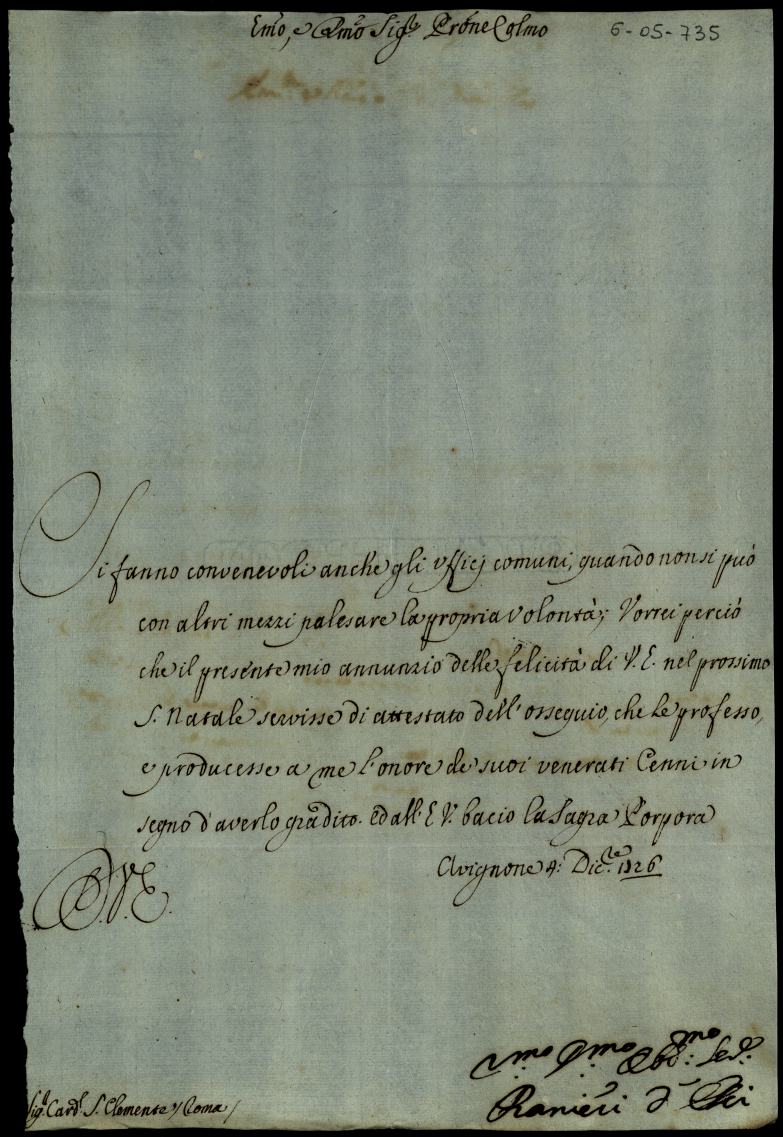 Em̃o, e Rm̃o Sig.re Prõne Colmo
6-05-735
Si fanno convenevoli anche gli ufficj comuni, quando non si può
con altri mezzi palesare la propria volontà; Vorrei perciò
che il presente mio annunzio delle felicità di V. E. nel prossimo
S. Natale servisse di attestato dell'ossequio, che Le professo,
e producesse a me l'onore de suoi venerati Cenni in
segno d'averlo gradito. Ed all'E V. bacio la Sagra Porpora
Avignone 4: Dic.re 1726
D. V. E.
Vmo Dmo Obb.mo Se.
Ranieri d'Elci
Sig.r Card.l S. Clemente / Roma /